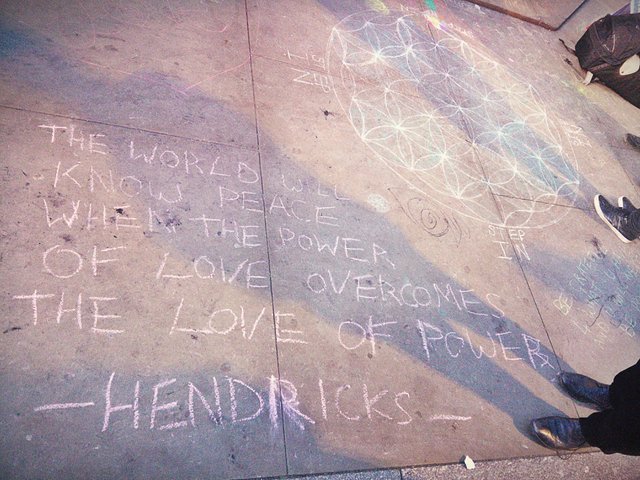 THE WORLD WILL
KNOW PEACE
WHEN THE POWER
OF LOVE OVERCOMES
THE LOVE OF POWER
- HENDRICKS -
STEP
IN
STEP
IN